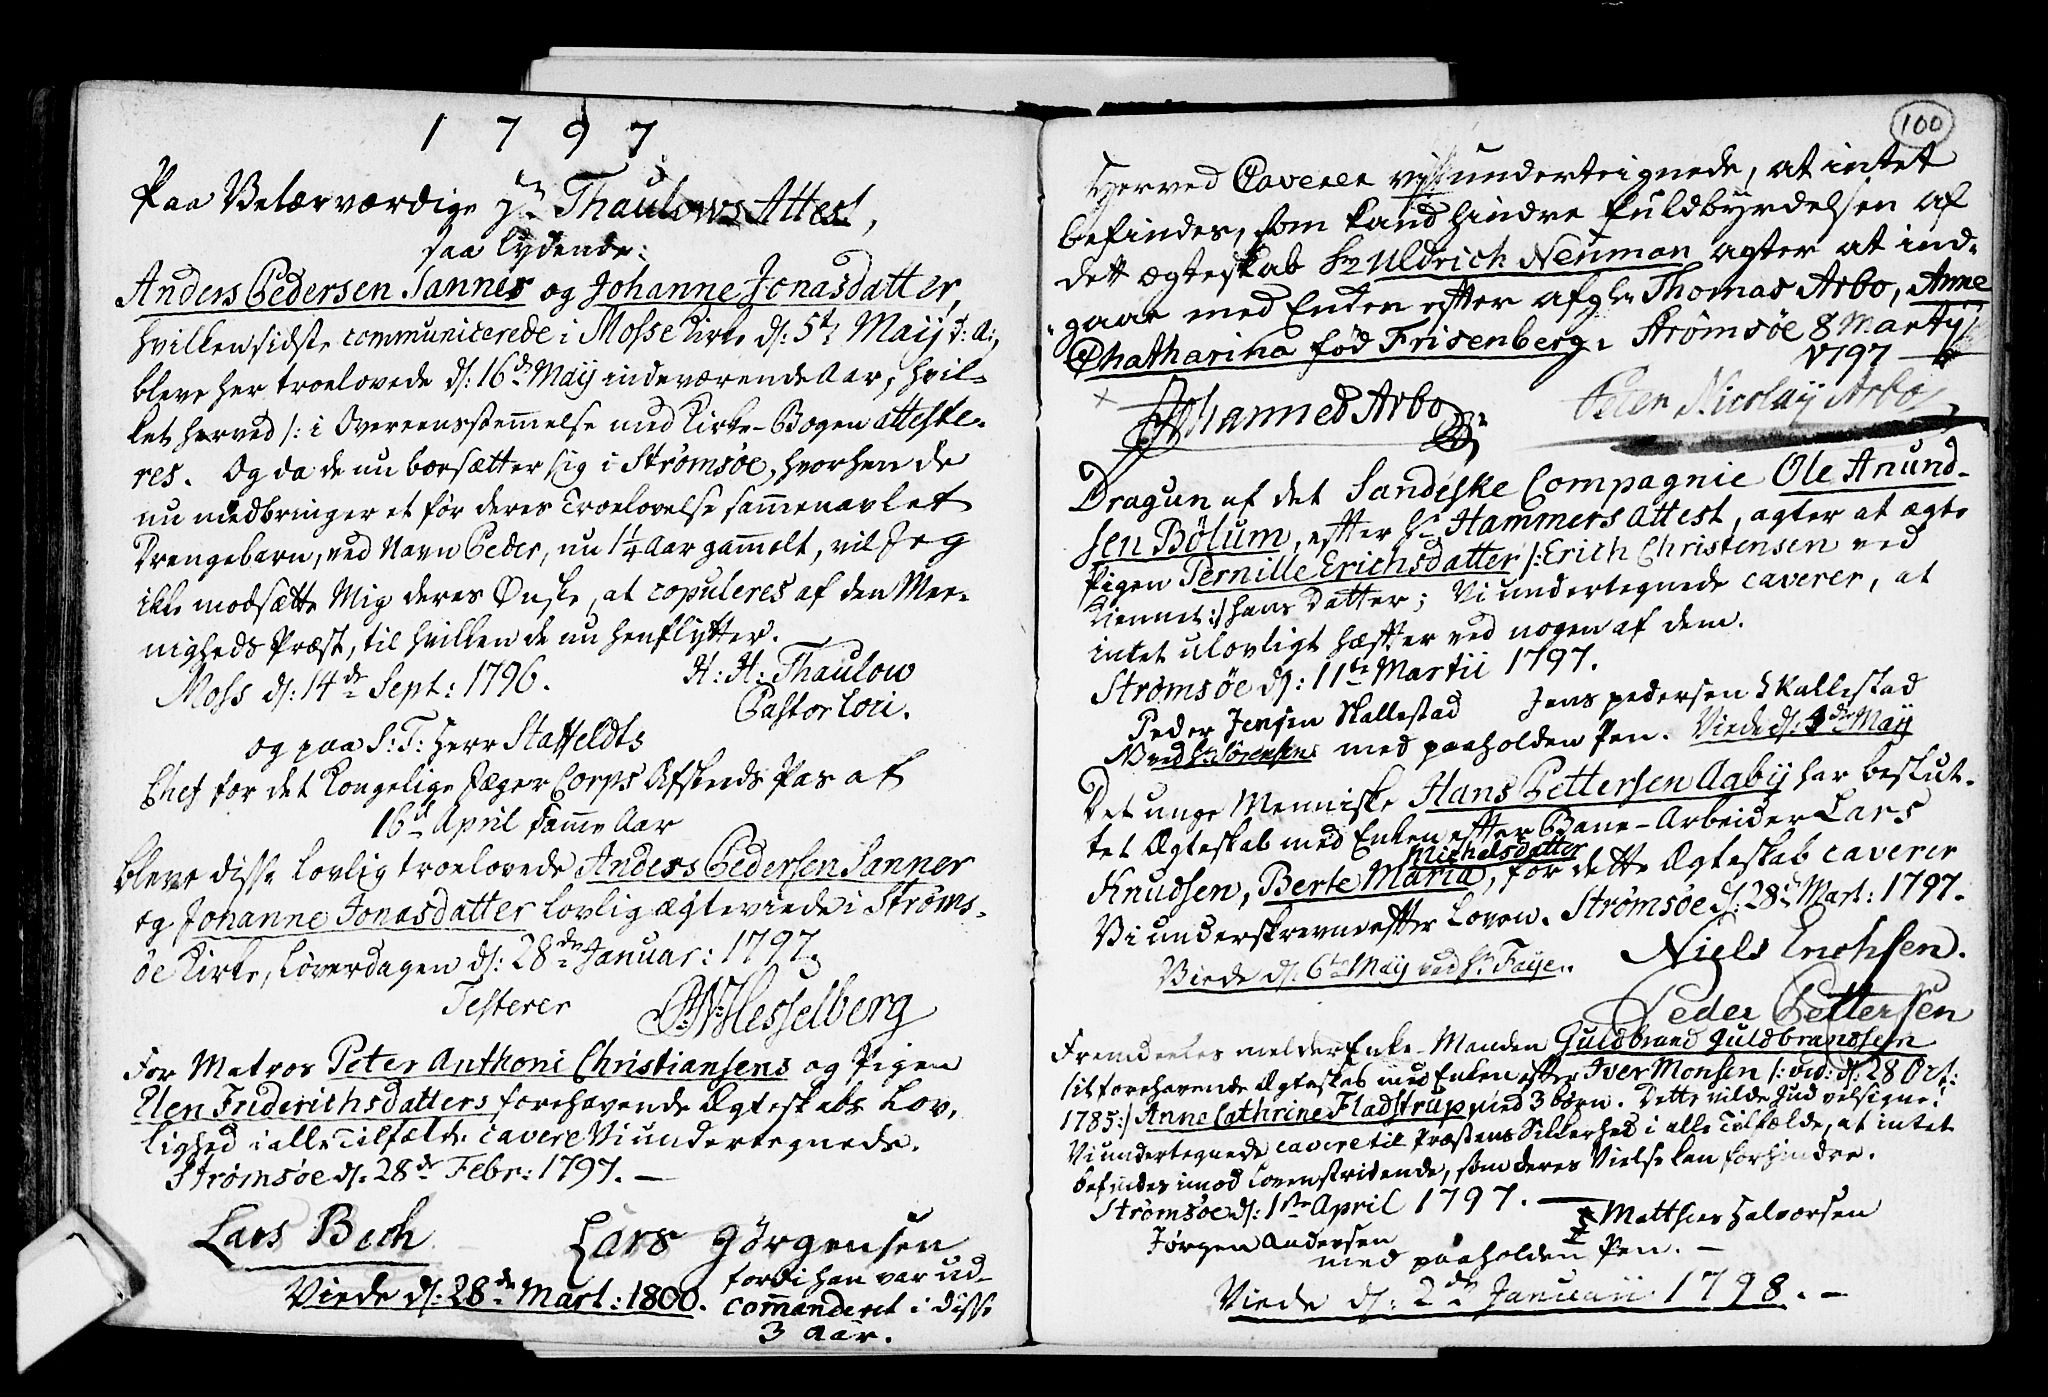 1797
Paa Velærværdige Hr Thaulows Attest,
saa lydende:
Anders Pedersen Sannes og Johanne Jonasdatter,
hvilken sidste communicerede i Mosse Kirke d: 5te Maij d: A:,
bleve her troelovede d: 16de May indeværende Aar, hvil-
ket herved /: i Overeensstemmelse med Kirke-Bogen atteste-
res. Og da de nu borsætter sig i Strømsøe, hvorhen de
nu medbringer et før deres Troelovelse sammenavlet
Drengebarn, ved Navn Peder, nu 1¼ Aar gammelt, vil Jeg
ikke modsætte Mig deres Ønske, at copuleres af den Mee-
nigheds Præst, til hvilken de nu henflytter.
Moss d: 14de Sept: 1796. H: H: Thaulow
Pastor loci.
og paa S: T: Herr Staffeldts
Chef for det Kongelige Jæger Corps Afskeds Pas af
16d April samme Aar
bleve disse lovlig troelovede Anders Pedersen Sannes
og Johanne Jonasdatter lovlig ægteviede i Strøms-
øe Kirke, Løverdagen d: 28de Januar: 1797.
Testerer Hesselberg
For Matros Peter Anthoni Christiansens og Pigen
Elen Friderichsdatters forehavende Ægteskabs Lov-
lighed i alle Tilfælde cavere Vi undertegnede.
Strømsøe d: 28de Febr: 1797. —
Lars Bech Lars Jørgensen
Viede d: 28de Mart: 1800. fordi han var ud-
commanderet i disse
3 Aar.
100
Herved Caverer vi underteignede, at intet
befindes, som kand hindre fuldbyrdelsen af
dett ægteskab Hr Uldrich Neuman agter at ind-
gaae med Enken efter afgl: Thomas Arbo, Anne
Chatharina fød Frisenberg. Strømsøe 8 Martij
1797
Johannes Arbo Peter Nicolay Arbo
Dragun af det Sandeske Compagnie Ole Anund-
sen Bølum, efter Hr Hammers Attest, agter at ægte
Pigen Pernille Erichsdatter /: Erich Christensen ved
Kiernet :/ hans Datter; Vi undertegnede caverer, at
intet ulovligt hæfter ved nogen af dem.
Strømsøe d: 11te Martii 1797.
Peder Jensen Skallestad Jens pedersen Skallestad
med paaholden Pen. Viede d: May
ved Hr Sørensen
Det unge Menniske Hans Pettersen Aaby har beslut-
tet Ægteskab med Enken efter Bane-Arbeider Lars
Michelsdatter
Knudsen, Berte Maria, for dette Ægteskab caverer
Vi underskrevne efter Loven. Strømsøe d: 28d Mart: 1797.
Viede d: 6te May ved Hr Faye. Niels Erichsen.
Peder Pettersen
Fremdeeles melder Enke-Manden Guldbrand Guldbrandsen
sit forehavende Ægteskab med Enken efter Iver Monsen /: vid: d: 28 Oct:
1785:/ Anne Cathrine Fladstrup med 3 børn. Dette vilde Gud velsigne!
Vi undertegnede cavere til Præstens Sikkerhed i alle Tilfælde, at intet
befindes imod Loven stridende, som deres Vielse kan forhindre.
Strømsøe d: 1ste April 1797. —
Matthies Halvorsen
Jørgen Andersen
med paaholden Pen. —
Viede d: 2de Januarii 1798. —